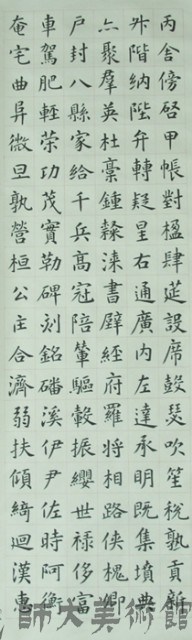 丙舍傍啓甲帳對楹肆筵設席鼓瑟吹笙稅熟貢新
升階納陛弁轉疑星右通廣內左達承明既集墳典
亦聚羣英杜稾鍾隸漆書壁經府羅將相路俠槐卿
戶封八縣家給千兵高冠陪輦驅轂振纓世祿侈富
車駕肥輕策功茂實勒碑刻銘磻溪伊尹佐時阿衡
奄宅曲阜微旦孰營桓公匡合濟弱扶傾綺迴漢惠
師大美術館